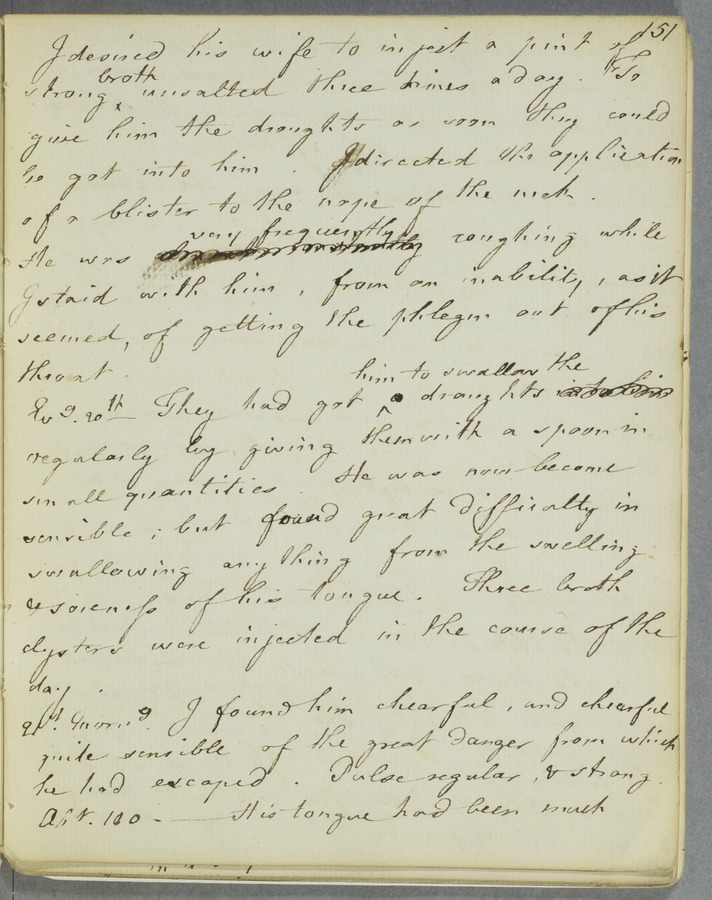 151
I desired his wife to inject a pint of
strong broth unsalted three times a day. To
give him the draughts as soon they could
be got into him. I directed the application
of a blister to the nape of the neck.
He was very frequently coughing while
I staid with him, from an inability, as it
seemed, of getting the phlegm out of his
throat.
Evg. 20th They had got him to swallow the draughts
regularly by giving them with a spoon in
small quantities. He was now become
sensible; but found great difficulty in
swallowing any thing from the swelling
& soreness of his tongue. Three broth
clysters were injected in the course of the
day.
21st. Morng. I found him chearful, and chearful
quite sensible of the great danger from which
he had escaped. Pulse regular, & strong.
Aft. 100 - His tongue had been much